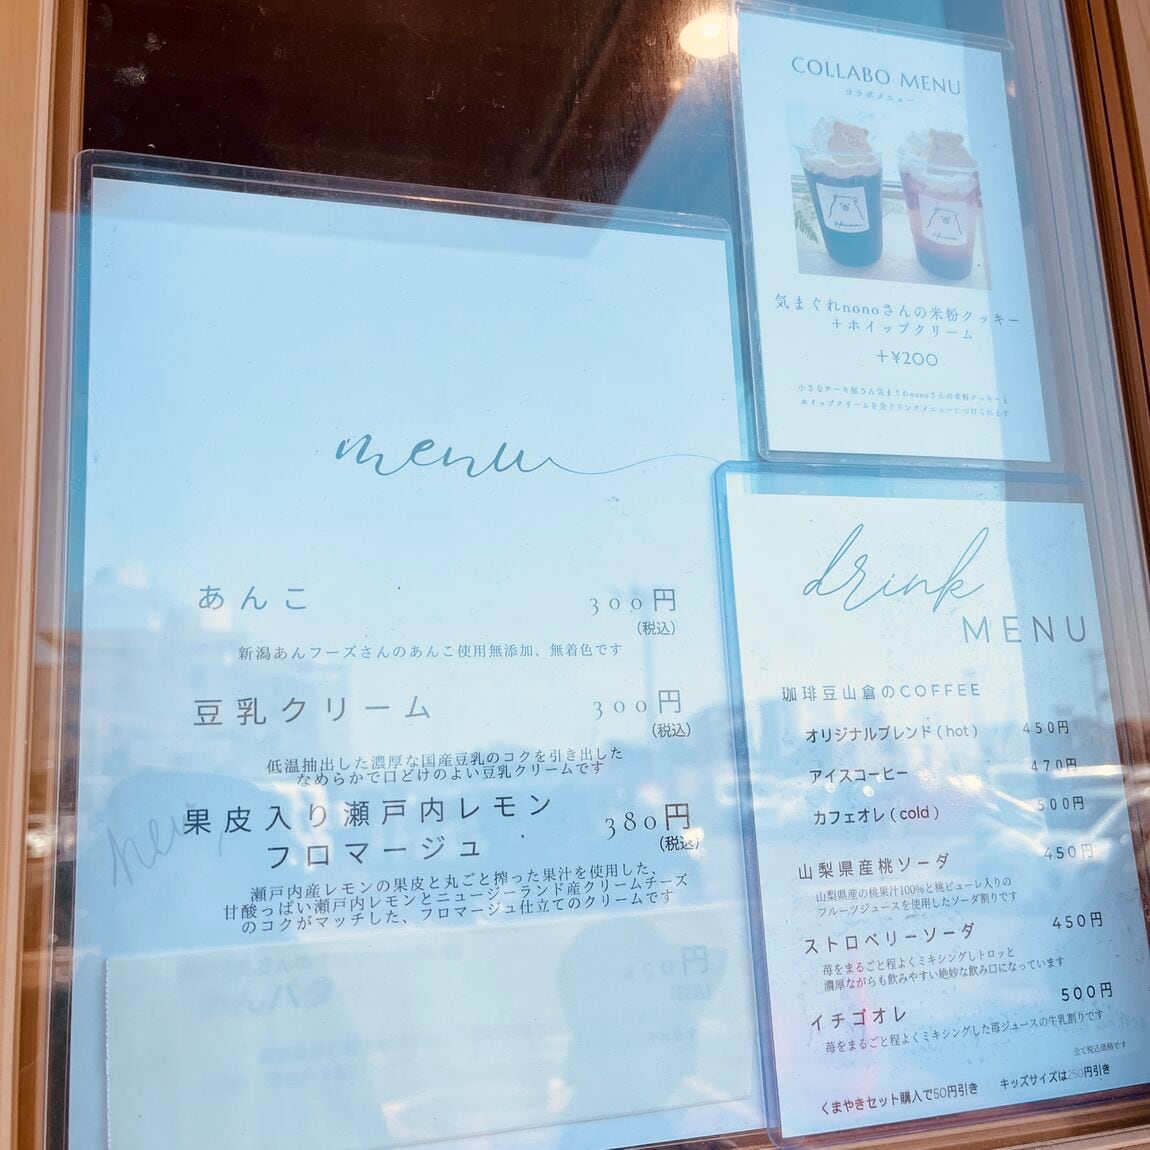 menu
あんこ 300円
(税込)
新潟あんフーズさんのあんこ使用無添加、無着色です
豆乳クリーム 300円
(税込)
低温抽出した濃厚な国産豆乳のコクを引き出した
なめらかで口どけのよい豆乳クリームです
果皮入り瀬戸内レモン
フロマージュ 380円
(税込)
瀬戸内産レモンの果皮と丸ごと搾った果汁を使用した、
甘酸っぱい瀬戸内レモンとニュージーランド産クリームチーズ
のコクがマッチした、フロマージュ仕立てのクリームです
COLLABO MENU
コラボメニュー
気まぐれnonoさんの米粉クッキー
＋ホイップクリーム
＋¥200
小さなケーキ屋さん気まぐれnonoさんの米粉クッキーと
ホイップクリームを全ドリンクメニューにつけられます
drink
MENU
珈琲豆山倉のCOFFEE
オリジナルブレンド(hot) 450円
アイスコーヒー 470円
カフェオレ(cold) 500円
山梨県産桃ソーダ 450円
山梨県産の桃果汁100％と桃ピューレ入りの
フルーツジュースを使用したソーダ割りです
ストロベリーソーダ 450円
苺をまるごと程よくミキシングしトロッと
濃厚ながらも飲みやすい絶妙な飲み口になっています
イチゴオレ 500円
苺をまるごと程よくミキシングした苺ジュースの牛乳割りです
全て税込価格です
くまやきセット購入で50円引き キッズサイズは250円引き